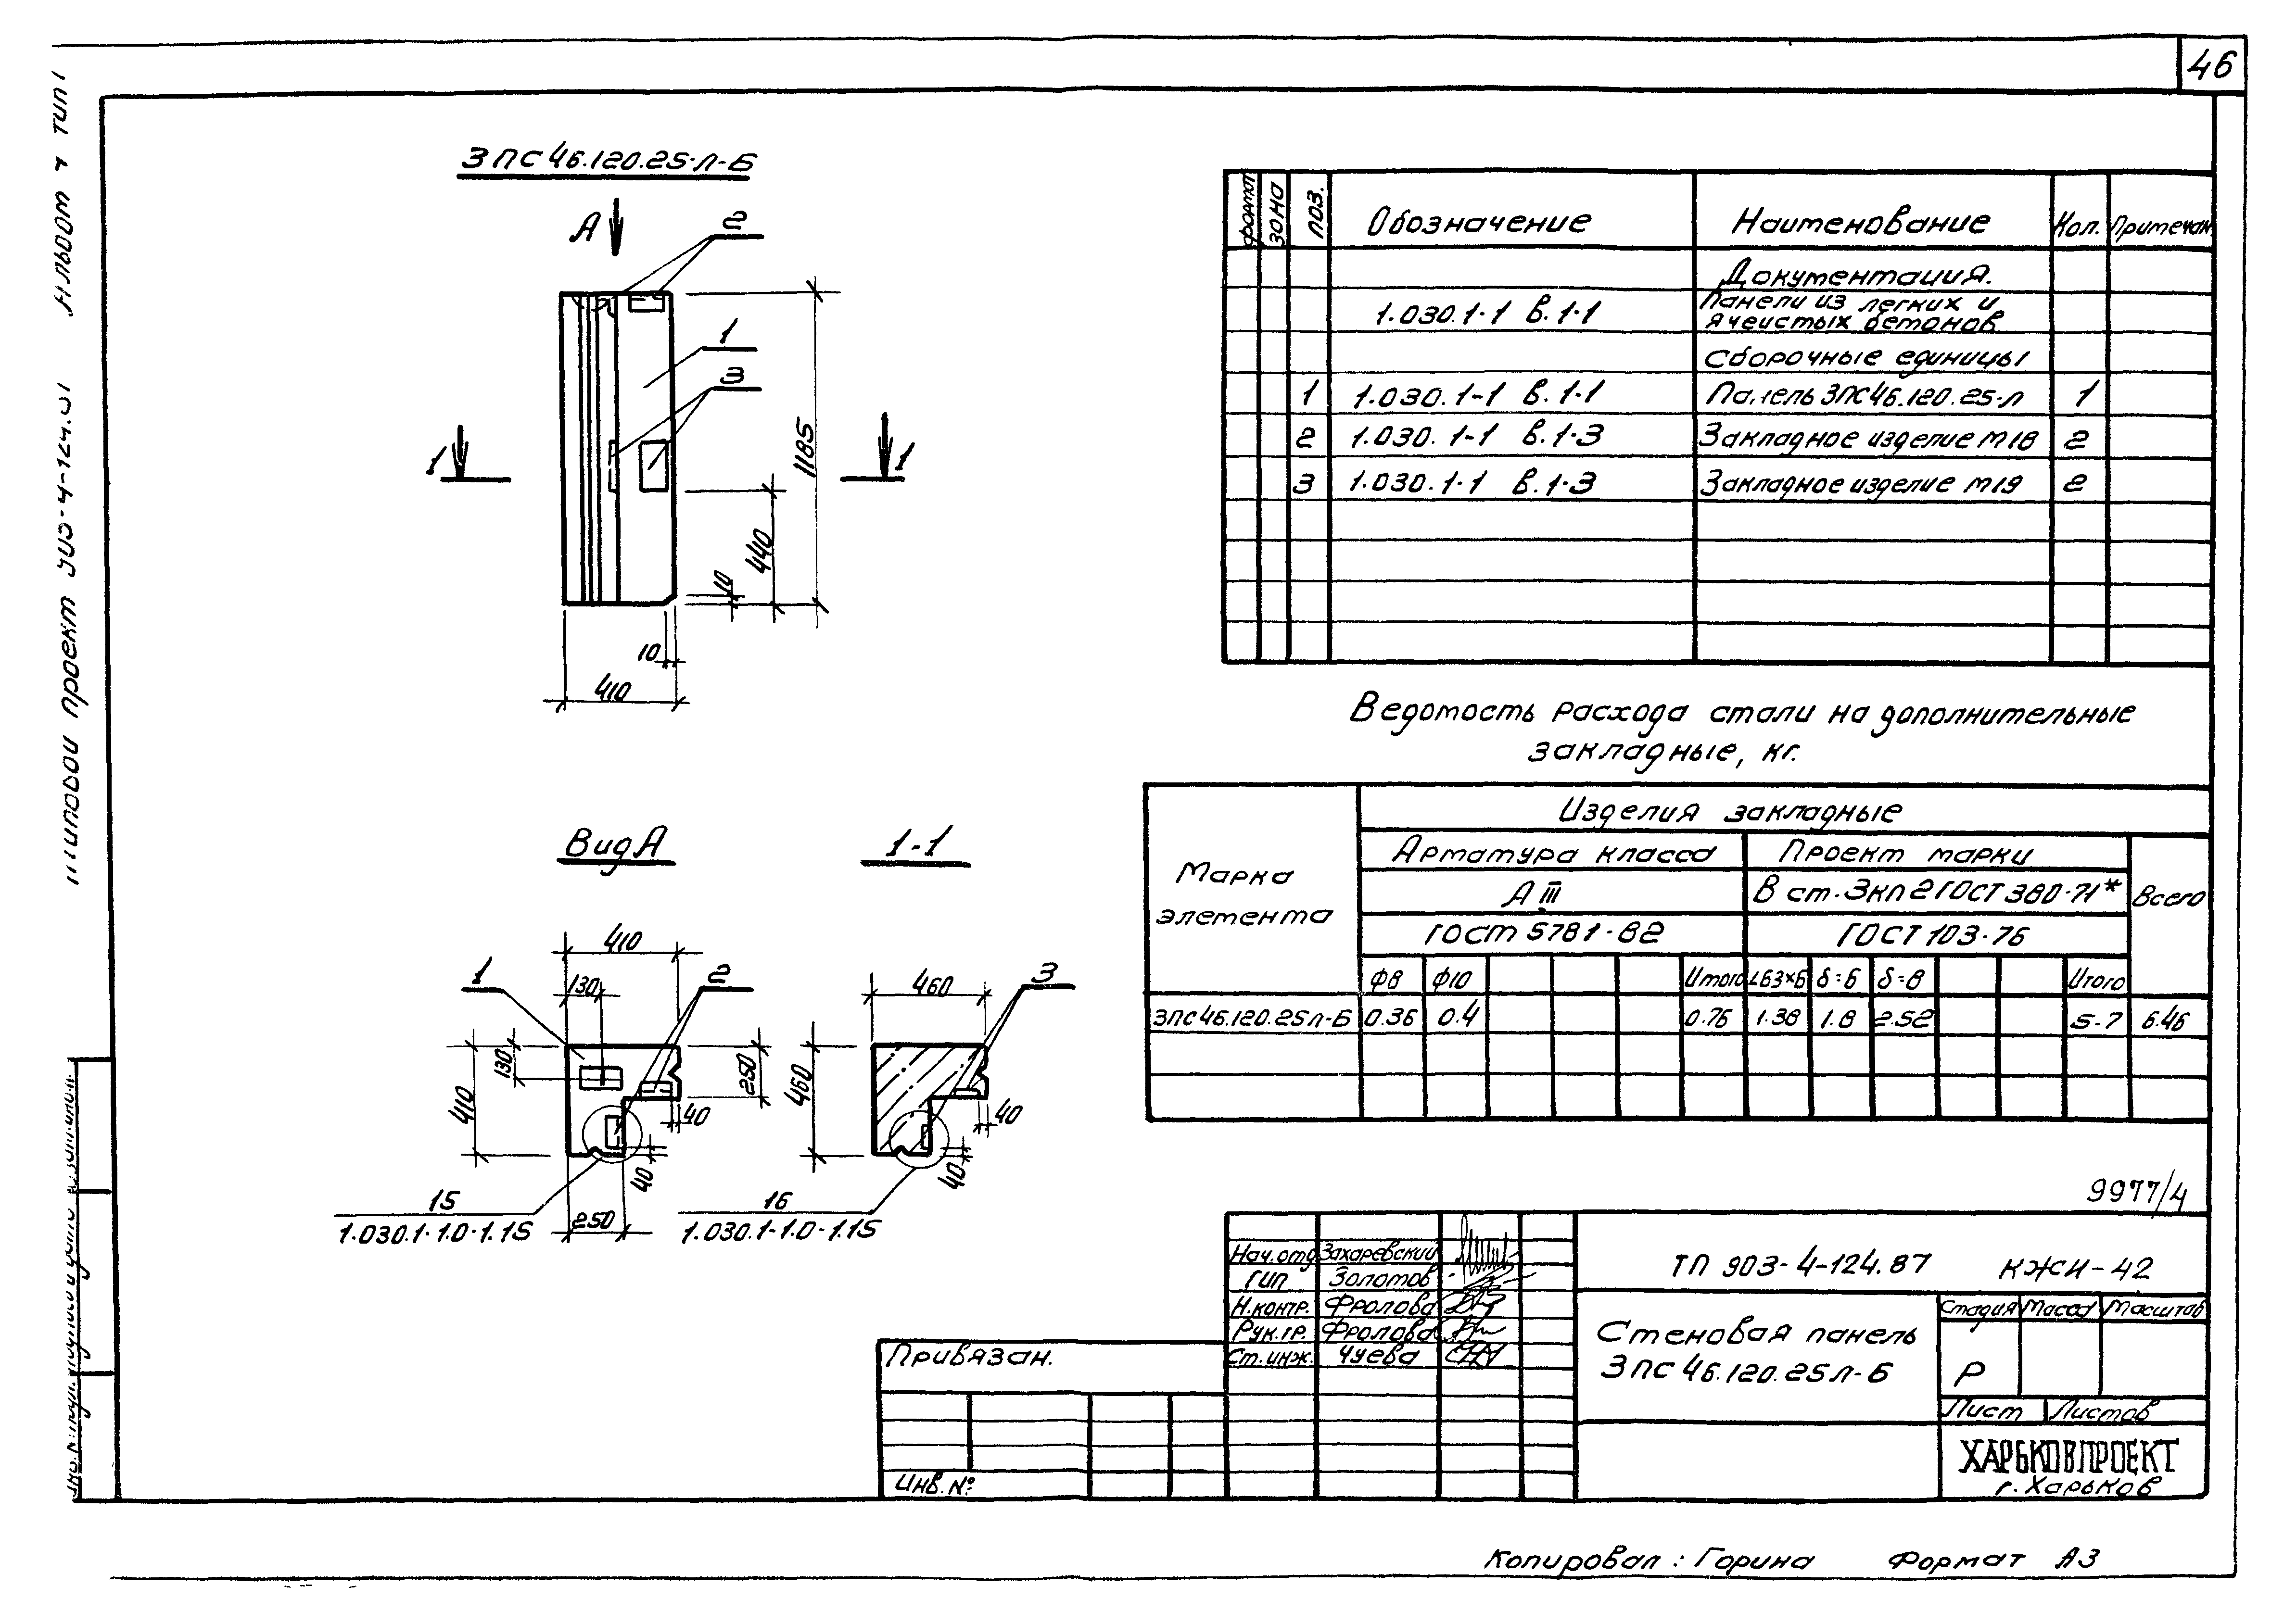 46
3ПС46.120.25-Л-Б
А
2
1
3
1
1
1185
440
10
10
410
Вид А
1-1
410
130
1
2
130
410
250
40
40
250
15
1.030.1-1.0-1.15
460
3
460
40
40
16
1.030.1-1.0-1.15
Формат
Зона
Поз.
Обозначение
Наименование
Кол.
Примечан
Документация.
1.030.1-1 в.1-1
Панели из легких и
ячеистых бетонов
Сборочные единицы
1 1.030.1-1 в.1-1 Панель 3ПС46.120.25-Л 1
2 1.030.1-1 в.1-3 Закладное изделие М18 2
3 1.030.1-1 в.1-3 Закладное изделие М19 2
Ведомость расхода стали на дополнительные
закладные, кг.
Марка
элемента
Изделия закладные
Арматура класса
Проект марки
А III
В ст.3кп2 ГОСТ 380-71*
Всего
ГОСТ 5781-82
ГОСТ 103-76
Ф8 Ф10 Итого L63×6 δ=6 δ=8 Итого
3ПС46.120.25Л-Б 0.36 0.4 0.76 1.38 1.8 2.52 5.7 6.46
9977/4
Нач.отд Захаревский
ГИП Золотов
Н.контр. Фролова
Рук.гр. Фролова
Ст.инж. Чуева
ТП 903-4-124.87 КЖИ-42
Стеновая панель
3ПС46.120.25Л-Б
Стадия Масса Масштаб
Р
Лист Листов
ХАРЬКОВПРОЕКТ
г.Харьков
Привязан.
Инв.№
Копировал: Горина Формат А3
Типовой проект